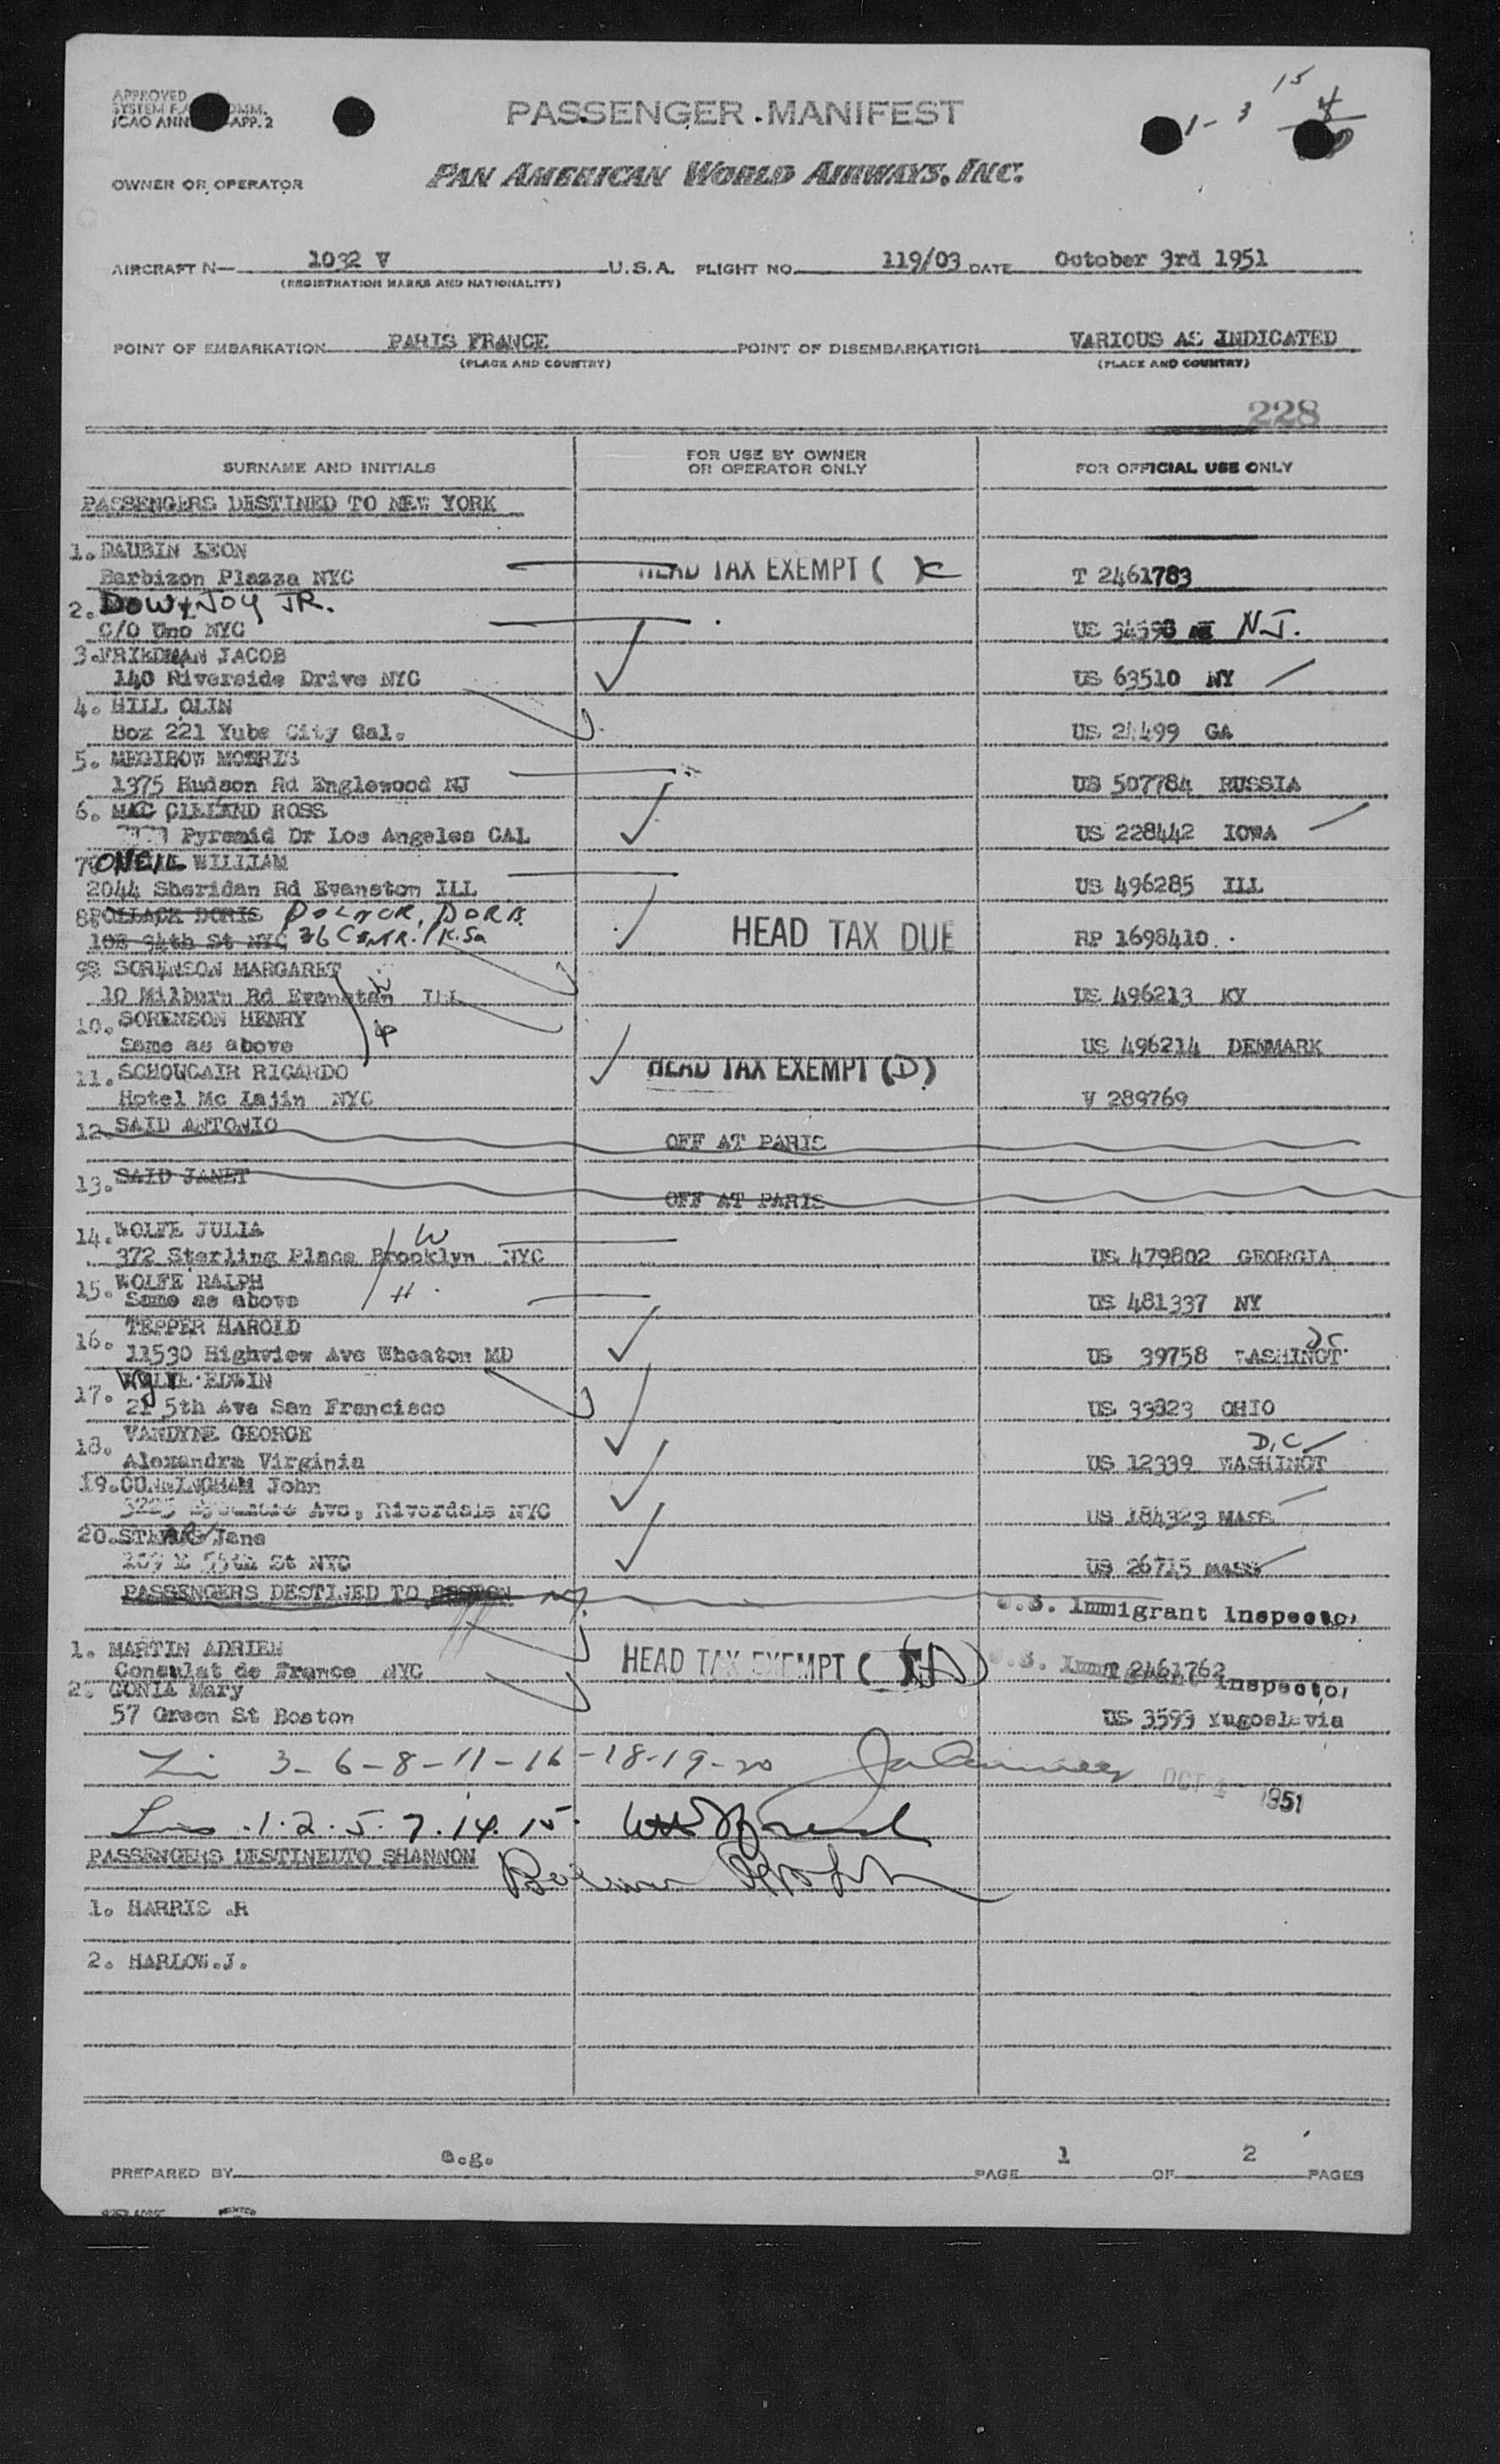 APPROVED
SYSTEM F.A. COMM.
ICAO ANN APP. 2
PASSENGER MANIFEST
1- 3 15 4
OWNER OR OPERATOR
PAN AMERICAN WORLD AIRWAYS, INC.
AIRCRAFT N— 1032 V U.S.A. FLIGHT NO. 119/03 DATE October 3rd 1951
(REGISTRATION MARKS AND NATIONALITY)
POINT OF EMBARKATION PARIS FRANCE POINT OF DISEMBARKATION VARIOUS AS INDICATED
(PLACE AND COUNTRY) (PLACE AND COUNTRY)
228
SURNAME AND INITIALS FOR USE BY OWNER OR OPERATOR ONLY FOR OFFICIAL USE ONLY
PASSENGERS DESTINED TO NEW YORK
1. DAUBIN LEON
Barbizon Plazza NYC HEAD TAX EXEMPT ( )C T 2461783
2. DOW JOY JR.
C/O Uno NYC US 34598 N.J.
3. FRIEDMAN JACOB
140 Riverside Drive NYC US 63510 NY
4. HILL OLIN
Box 221 Yube City Cal. US 24499 GA
5. MEGIBOW MORRIS
1375 Hudson Rd Englewood NJ US 507784 RUSSIA
6. MAC CLELAND ROSS
Pyramid Dr Los Angeles CAL US 228442 IOWA
7. ONEIL WILLIAM
2044 Sheridan Rd Evanston ILL US 496285 ILL
8. POLLACK DORIS DORA
94th St NYC HEAD TAX DUE RP 1698410
9. SORENSON MARGARET
10 Milburn Rd Evanston ILL US 496213 KY
10. SORENSON HENRY
Same as above US 496214 DENMARK
11. SCHOUCAIR RICARDO HEAD TAX EXEMPT (D)
Hotel Mc Lajin NYC V 289769
12. SAID ANTONIO
OFF AT PARIS
13. SAID JANET
OFF AT PARIS
14. WOLFE JULIA W
372 Sterling Place Brooklyn NYC US 479802 GEORGIA
15. WOLFE RALPH H
Same as above US 481337 NY
16. TEPPER HAROLD
11530 Highview Ave Wheaton MD US 39758 WASHINGT
17. EDWIN
21 5th Ave San Francisco US 33823 OHIO
18. VANDYNE GEORGE D.C
Alexandra Virginia US 12339 WASHINGT
19. CUNNINGHAM John
Ave, Riverdale NYC US 184323 MASS
20. Jane
E 55th St NYC US 26715 MASS
PASSENGERS DESTINED TO BOSTON
U.S. Immigrant Inspector
1. MARTIN ADRIEN
Consulat de France NYC HEAD TAX EXEMPT ( ) T 2461762
U.S. Immigrant Inspector
2. GONIA Mary
57 Green St Boston US 3593 Yugoslavia
3-6-8-11-16-18-19-20
OCT 4 1951
1. 2. 5. 7. 14. 15.
PASSENGERS DESTINEDTO SHANNON
1. HARRIS .R
2. HARLOW.J.
PREPARED BY e.g. PAGE 1 OF 2 PAGES